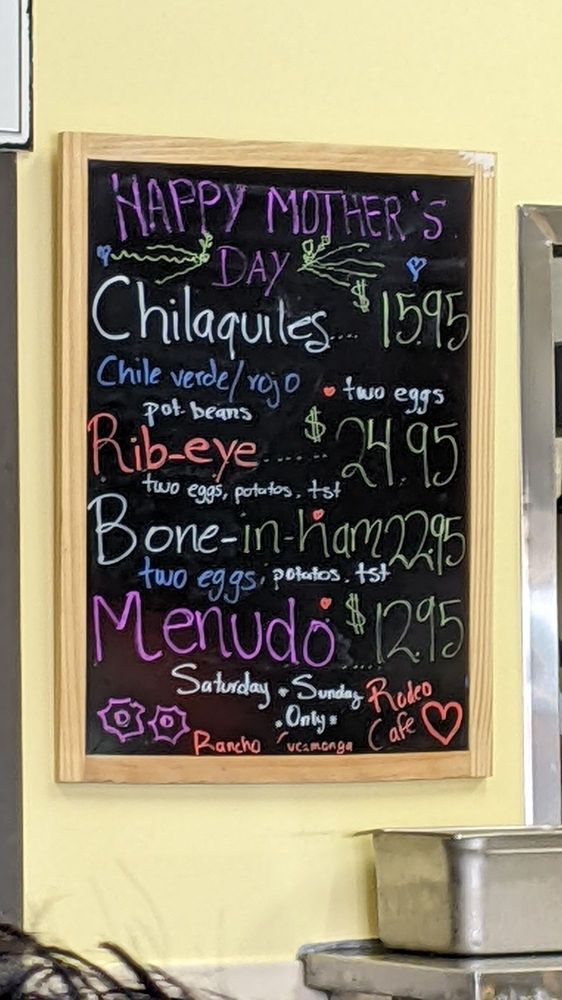 HAPPY MOTHER'S
DAY
Chilaquiles.... $15.95
Chile verde/rojo • two eggs
pot beans
Rib-eye....... $24.95
two eggs, potatos, tst
Bone-in-ham 22.95
two eggs, potatos, tst
Menudo .... $12.95
Saturday • Sunday
• Only •
Rodeo
Cafe
Rancho Cucamonga